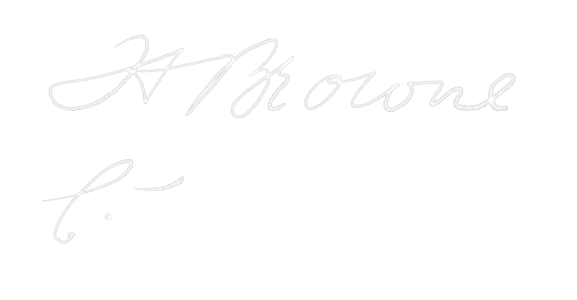 H Browne